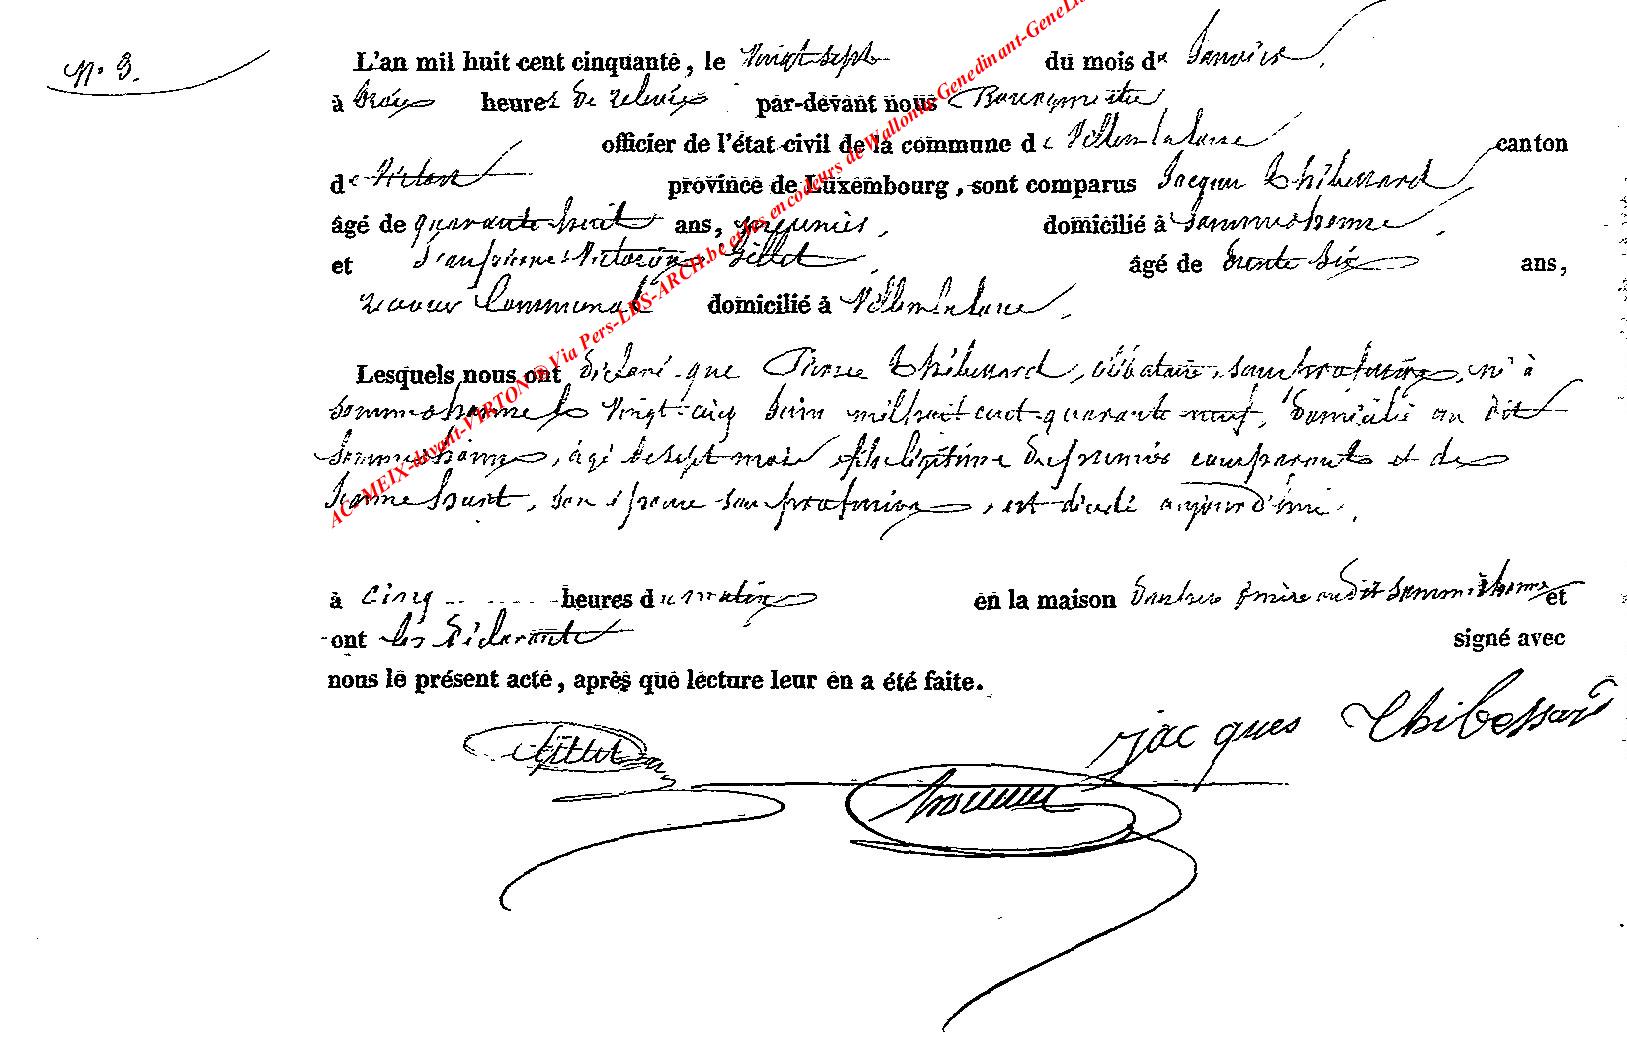 N° 3.
L'an mil huit cent cinquante, le vingt sept du mois de Janvier
à trois heures de relevée par-devant nous Bourgmestre
officier de l'état civil de la commune de Villers la loue canton
de Virton province de Luxembourg, sont comparus Jacques Thibessard
âgé de quarante huit ans, domicilié à Sommethonne
et Jean pierre Victorin Gillet âgé de trente six ans,
receveur Communal domicilié à Villers la loue
Lesquels nous ont déclaré que Pierre Thibessard, célibataire, sans profession, né à
Sommethonne le vingt-cinq Juin mil huit cent quarante neuf, domicilié au dit
Sommethonne, âgé de sept mois fils légitime du premier comparant et de
Jeanne, son épouse sans profession, est décédé aujourd'hui
à cinq heures du matin en la maison de au dit Sommethonne et
ont les déclarants signé avec
nous le présent acte, après que lecture leur en a été faite.
Gillet
Jacques Thibessard
AC-MEIX-devant-VIRTON ® Via Pers-LDS-ARCH.be et les encodeurs de Wallonia-Genedinant-GeneLi